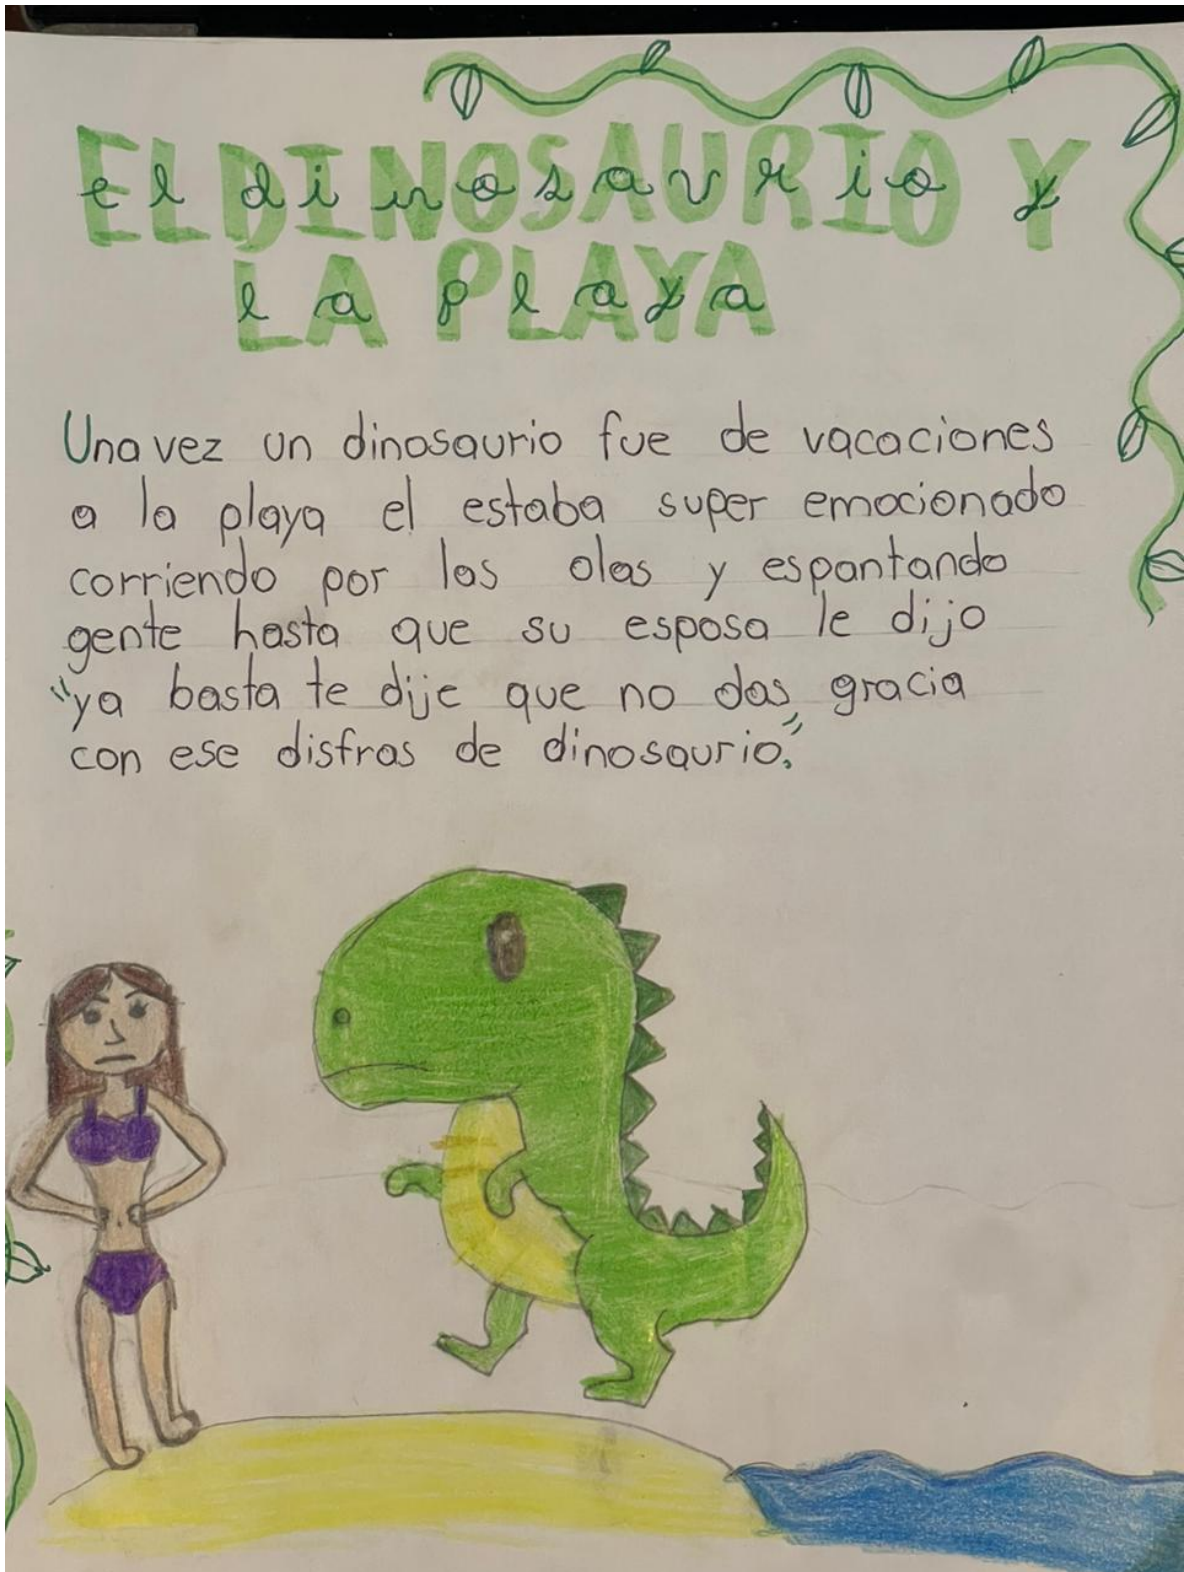 EL DINOSAURIO Y
LA PLAYA
Una vez un dinosaurio fue de vacaciones
a la playa el estaba super emocionado
corriendo por las olas y espantando
gente hasta que su esposa le dijo
"ya basta te dije que no das gracia
con ese disfras de dinosaurio."